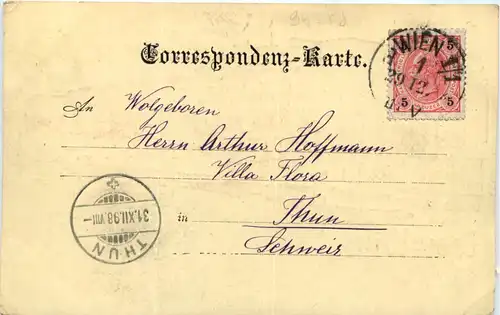 Correspondenz-Karte.
WIEN
1
29 12
5
5 5
An Wolgeboren
Herrn Arthur Hoffmann
Villa Flora
in Thun
Schweiz
31.XII.98.VIII-
THUN